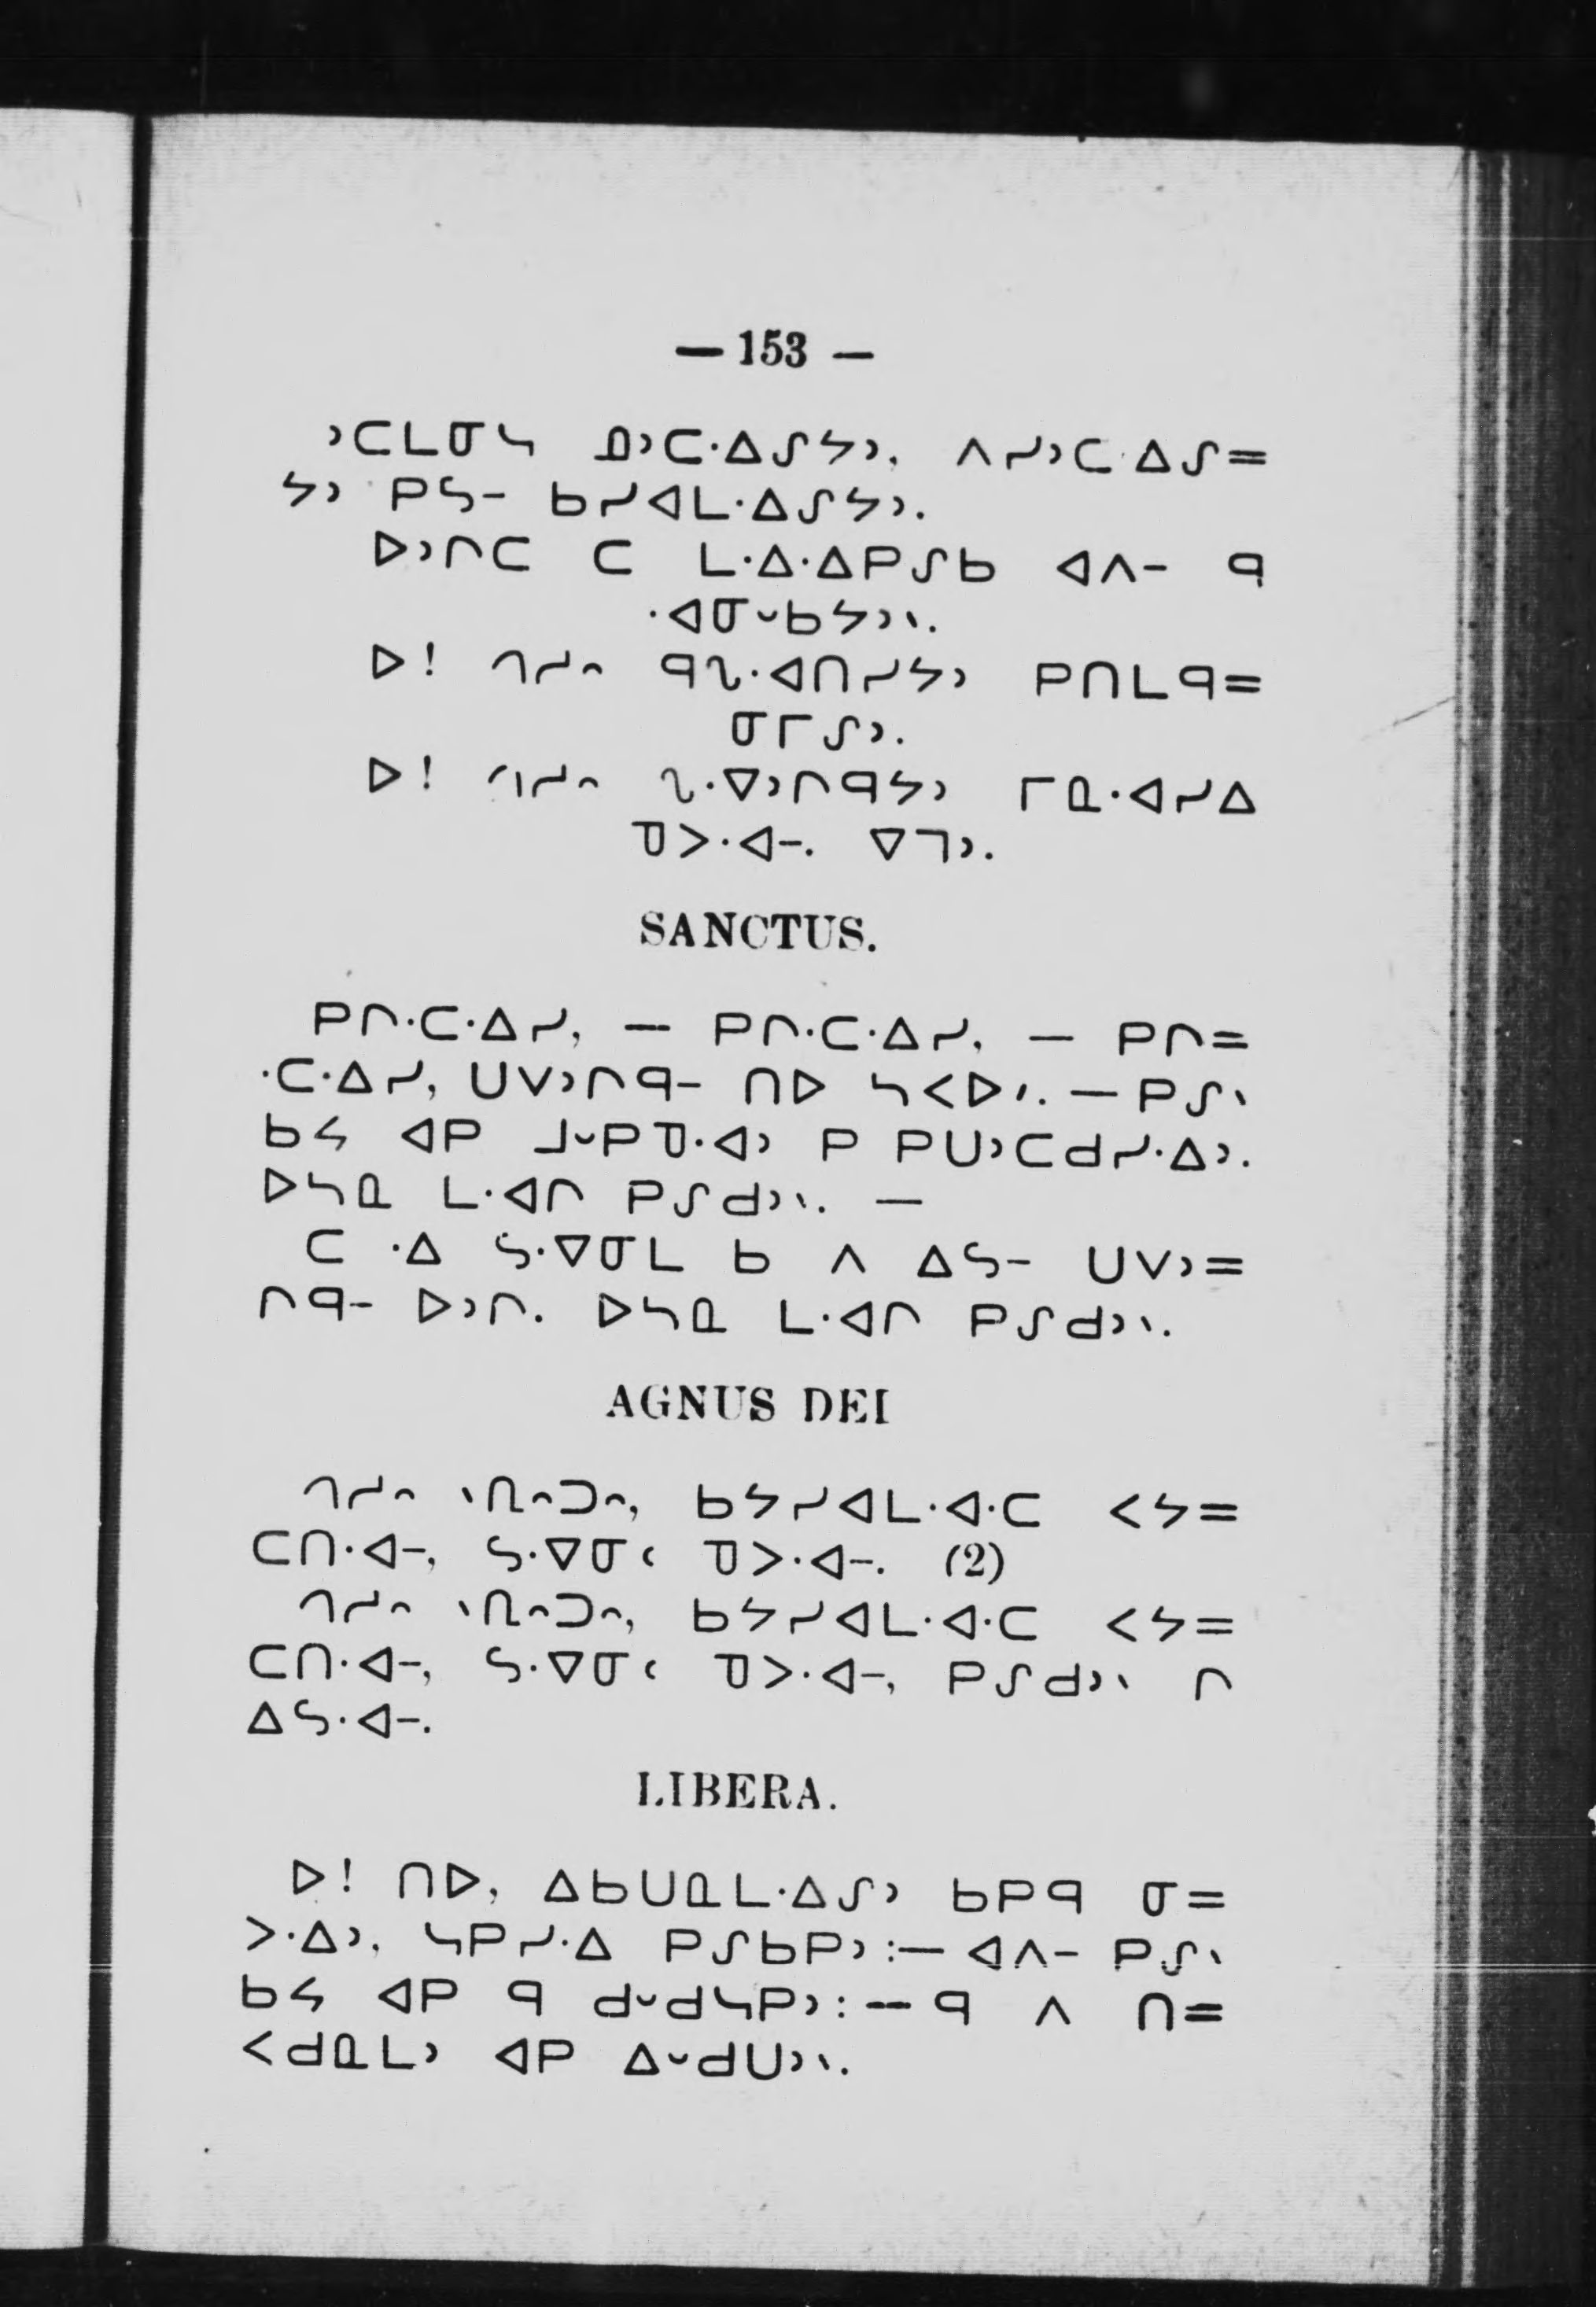 — 153 —
ᐣᑕᒪᓂᓴ ᓅᐣᑕᐧᐃᔑᔭᐣ, ᐱᓯᐣᑕᐧᐃᔑ=
ᔭᐣ ᑭᓭ- ᑲᓯᐊᒪᐧᐃᔑᔭᐣ.
ᐅᐣᒋᑕ ᑕ ᒪᐧᐃᐧᐃᑭᔑᑲ ᐊᐱ- ᑫ
ᐧᐊᓂᐡᑲᔭᐣᐠ.
ᐅ! ᒉᓱᐢ ᑫᔐᐧᐊᑎᓯᔭᐣ ᑭᑎᒪᑫ=
ᓂᒥᔑᐣ.
ᐅ! ᓯᓱᐢ ᔐᐧᐁᐣᒋᑫᔭᐣ ᒥᓇᐧᐊᓯᐃ
ᑌᐳᐧᐊ-. ᐁᒣᐣ.
SANCTUS.
ᑭᒋᐧᑕᐧᐃᓯ, — ᑭᒋᐧᑕᐧᐃᓯ, — ᑭᒋ=
ᐧᑕᐧᐃᓯ, ᑌᐯᐣᒋᑫ- ᑎᐅ ᓴᐸᐅᐟ. — ᑭᔑᐠ
ᑲᔦ ᐊᑭ ᒧᐡᑭᑌᐧᐊᐣ ᑭ ᑭᑌᐣᑕᑯᓯᐧᐃᐣ.
ᐅᓴᓇ ᒪᐧᐊᒋ ᑭᔑᑯᐣᐠ. —
ᑕ ᐧᐃ ᓭᐧᐁᓂᒪ ᑲ ᐱ ᐃᓭ- ᑌᐯᐣ=
ᒋᑫ- ᐅᐣᒋ. ᐅᓴᓇ ᒪᐧᐊᒋ ᑭᔑᑯᐣᐠ.
AGNUS DEI
ᒉᓱᐢ ᐠᕆᐢᑐᐢ, ᑲᔭᓯᐊᒪᐧᐊᐧᑕ ᐸᔭ=
ᑕᑎᐧᐊ-, ᓭᐧᐁᓂᑉ ᑌᐳᐧᐊ-. (2)
ᒉᓱᐢ ᐠᕆᐢᑐᐢ, ᑲᔭᓯᐊᒪᐧᐊᐧᑕ ᐸᔭ=
ᑕᑎᐧᐊ-, ᓭᐧᐁᓂᑉ ᑌᐳᐧᐊ-, ᑭᔑᑯᐣᐠ ᒋ
ᐃᓭᐧᐊ-.
LIBERA.
ᐅ! ᑎᐅ, ᐃᑲᑌᓇᒪᐧᐃᔑᐣ ᑲᑭᑫ ᓂ=
ᐳᐧᐃᐣ, ᓴᑭᓯᐧᐃ ᑭᔑᑲᑭᐣ :— ᐊᐱ- ᑭᔑᐠ
ᑲᔦ ᐊᑭ ᑫ ᑯᐡᑯᓴᑭᐣ : — ᑫ ᐱ ᑎ=
ᐸᑯᓇᒪᐣ ᐊᑭ ᐃᐡᑯᑌᐣᐠ.